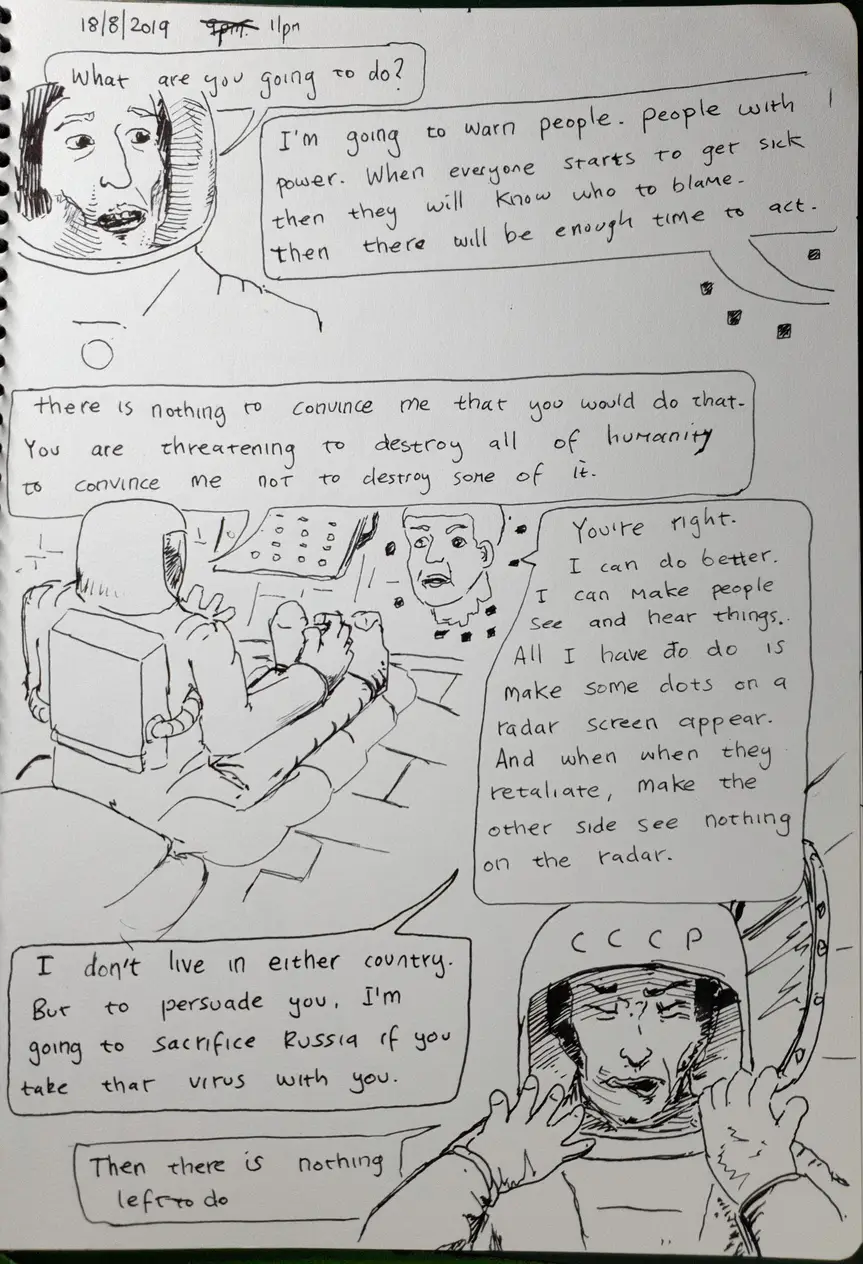 18/8/2019 9pm. 11pm
What are you going to do?
I'm going to warn people. people with
power. When everyone starts to get sick
then they will know who to blame.
then there will be enough time to act.
there is nothing to convince me that you would do that.
You are threatening to destroy all of humanity
to convince me not to destroy some of it.
You're right.
I can do better.
I can make people
see and hear things.
All I have to do is
make some dots on a
radar screen appear.
And when when they
retaliate, make the
other side see nothing
on the radar.
I don't live in either country.
But to persuade you, I'm
going to sacrifice Russia if you
take that virus with you.
CCCP
Then there is nothing
left to do